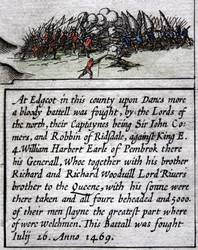 At Edgcot in this county upon Danes more
a bloody battell was fought, by the Lords of
the north, their Captaynes being Sir Iohn Co-
niers, and Robbin of Ridsdale, against King E.
4. William Harbert Earle of Pembrok there
his Generall, Whoe together with his brother
Richard and Richard Wooduill Lord Riuers
brother to the Queene, with his sonne were
there taken and all foure beheaded and 5000.
of their men slayne the greatest part where
of were Welchmen. This Battall was fought
Iuly 26. Anno 1469.